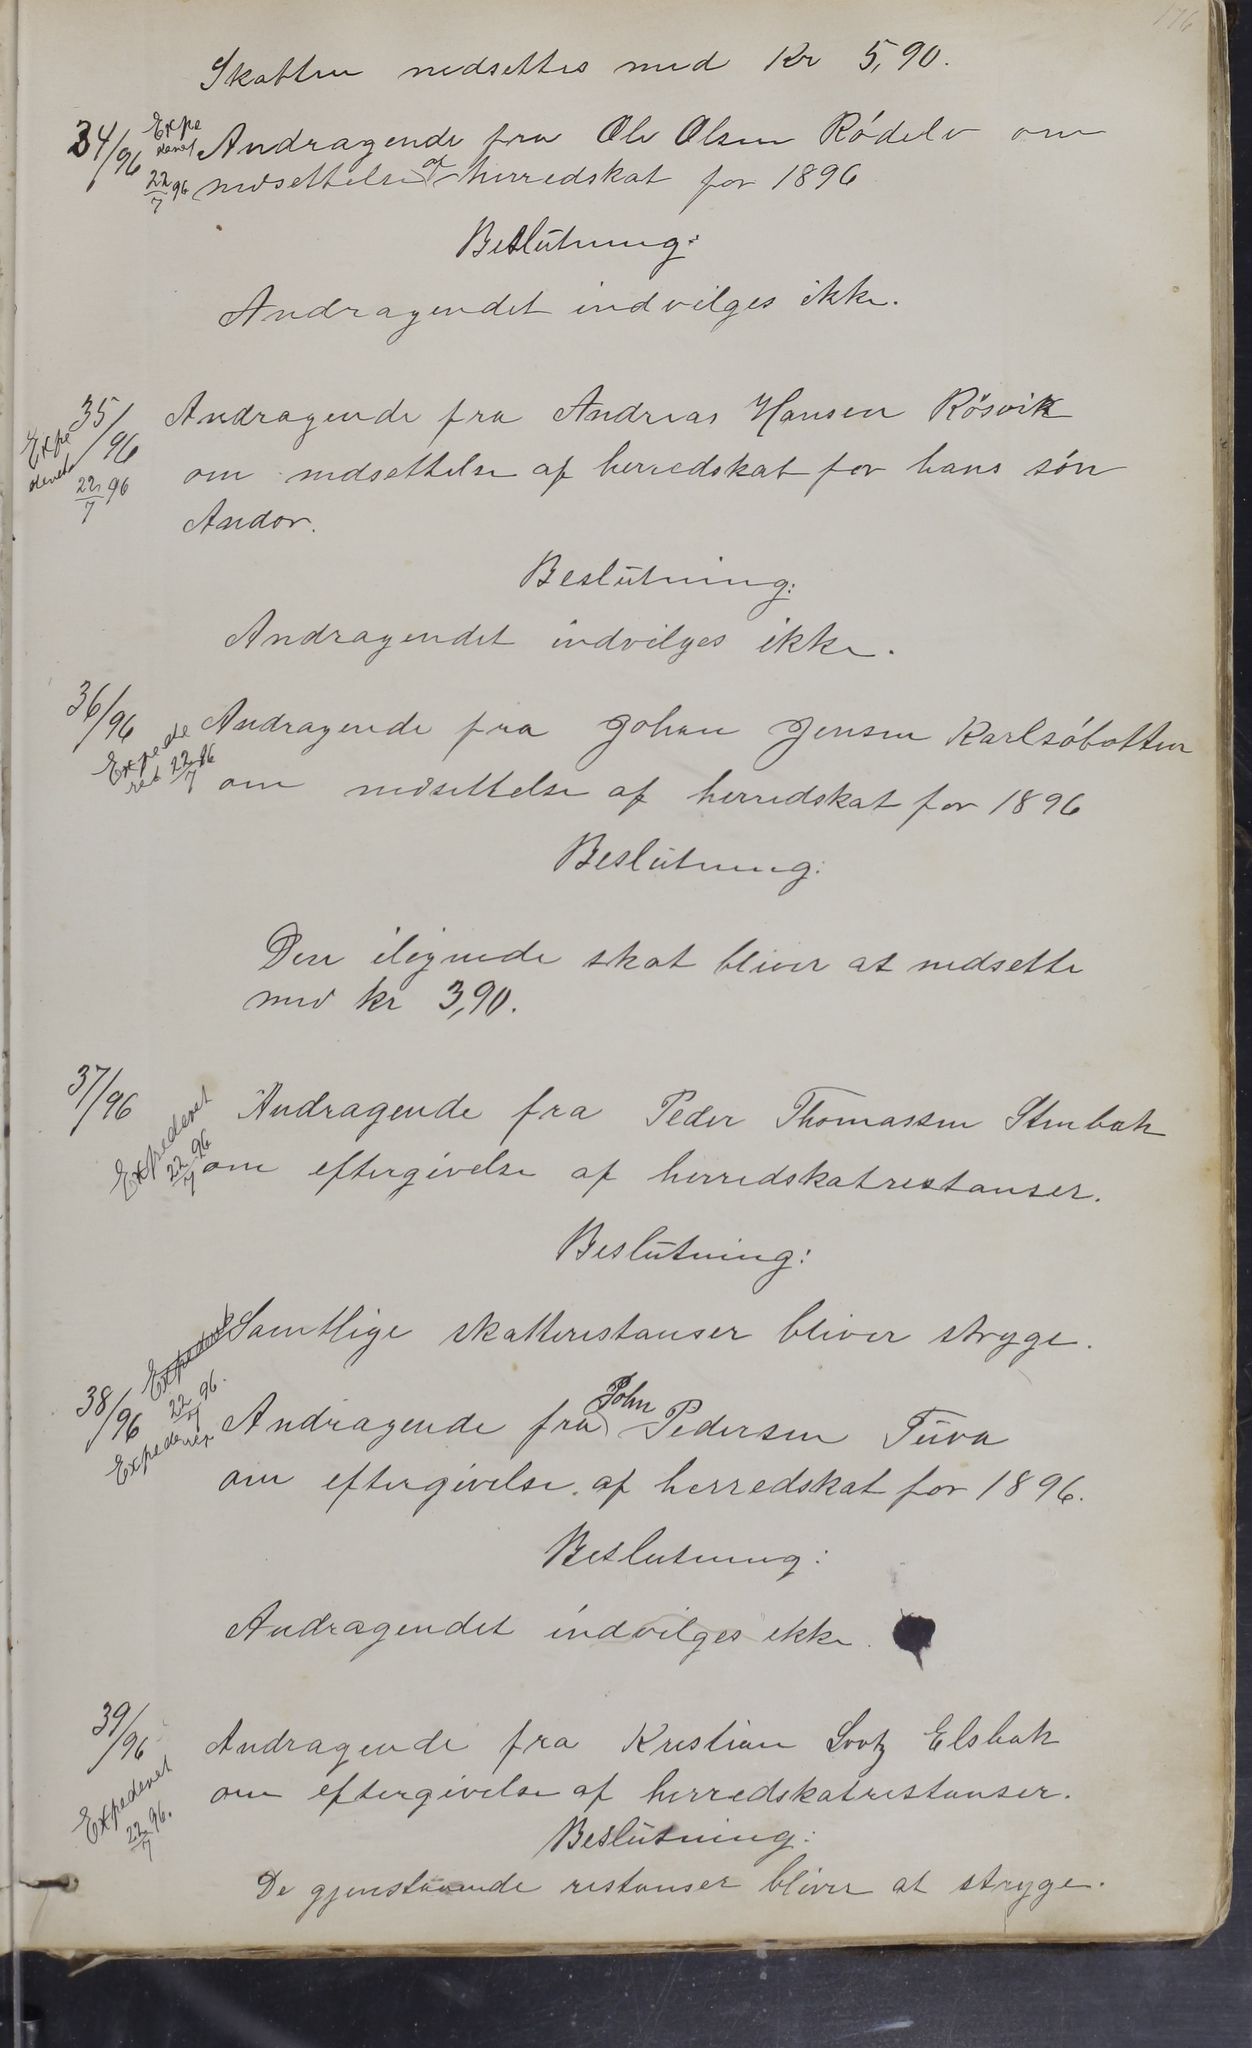 176
Skatten nedsettes med Kr 5,90.
34/96 Expederet 22/7 96 Andragende fra Ole Olsen Rödelv om
nedsettelse af herredskat for 1896
Beslutning:
Andragendet indvilges ikke.
35/96 Expederet 22/7 96 Andragende fra Andreas Hansen Rösvik
om nedsettelse af herredskat for hans sön
Andor.
Beslutning:
Andragendet indvilges ikke.
36/96 Expederet 22/7 96 Andragende fra Johan Jensen Karlsöbotten
om nedsettelse af herredskat for 1896
Beslutning:
Den ilignede skat bliver at nedsette
med kr 3,90.
37/96 Expederet 22/7 96 Andragende fra Peder Thomassen Stenbak
om eftergivelse af herredskatrestanser.
Beslutning:
Samtlige skatterestanser bliver stryge.
38/96 Expederet 22/7 96. Expederet Andragende fra John Pedersen Tuva
om eftergivelse af herredskat for 1896.
Beslutning:
Andragendet indvilges ikke.
39/96 Expederet 22/7 96. Andragende fra Kristian Elsbak
om eftergivelse af herredskatrestanser.
Beslutning:
De gjenstaaende restanser bliver at stryge.